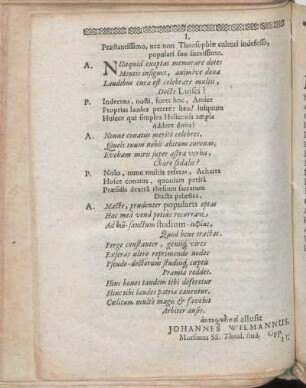 I.
Præstantissimo, nec non Theosophiæ cultori indefesso,
populari suo suavissimo.
A. NUnquid cœptas memorare dotes
Mentis insignes, animive dona
Laudibus cura est celebrare multis,
Docte Luisci?
P. Indecens, nosti, foret hoc, Amice
Proprias laudes petere: heu! iniquum
Huicce qui simplex Heliconis ampla
Addere dona?
A. Nonne conatus meritò celebres,
Queis tuum nobis abitum coronas,
Eveham miris super astra verbis,
Chare sodalis?
P. Nolo, nunc multis refices, Achates
Hosce conatus, quoniam petita
Præsidia dextrâ thesium sacrarum
Docta palæstra.
A. Macte, prudenter popularis optas
Hac meâ venâ potius recurram
Ad bis-sanctum studium,
Quod bene tractas.
Perge constanter, geniiq; vires
Exseras ultro reprimendo nodos
Pseudo-doctorum studiisq; capta
Præmia reddet.
Hinc honos tandem tibi deferetur
Hinc tibi laudes patria canentur,
Cultum multò magis & favebit
Arbiter ausis.
allusit
JOHANNES WILMANNUS,
Mœrsanus SS. Theol. stud. Opp.